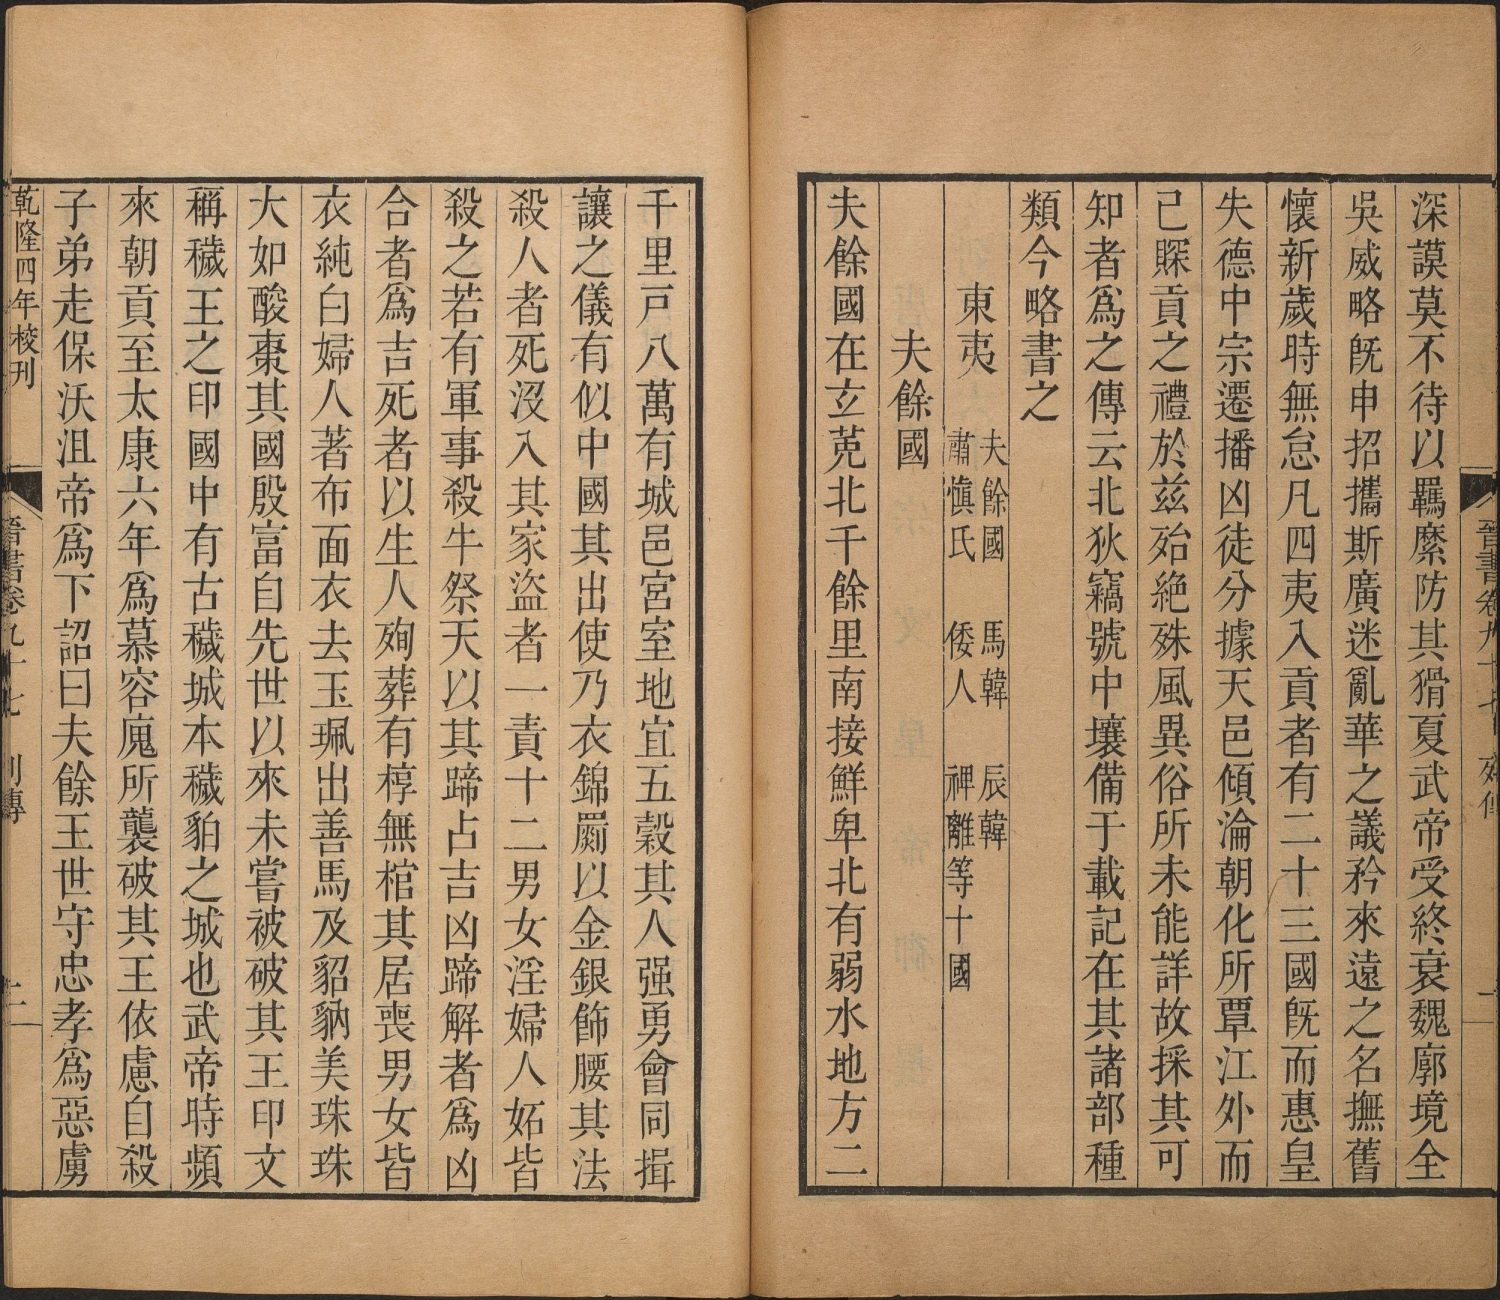 深謨莫不待以羈縻防其猾夏武帝受終衰魏廓境全
吳威略旣申招攜斯廣迷亂華之議矜來遠之名撫舊
懷新歲時無怠凡四夷入貢者有二十三國旣而惠皇
失德中宗遷播凶徒分據天邑傾淪朝化所覃江外而
已賝貢之禮於茲殆絶殊風異俗所未能詳故採其可
知者爲之傳云北狄竊號中壤備于載記在其諸部種
類今略書之
東夷 夫餘國 馬韓 辰韓
肅愼氏 倭人 裨離等十國
夫餘國
夫餘國在玄菟北千餘里南接鮮卑北有弱水地方二
晉書卷九十七 列傳 一
千里戸八萬有城邑宮室地宜五穀其人强勇會同揖
讓之儀有似中國其出使乃衣錦罽以金銀飾腰其法
殺人者死沒入其家盜者一責十二男女淫婦人妬皆
殺之若有軍事殺牛祭天以其蹄占吉凶蹄解者爲凶
合者爲吉死者以生人殉葬有椁無棺其居喪男女皆
衣純白婦人著布面衣去玉珮出善馬及貂豽美珠珠
大如酸棗其國殷富自先世以來未嘗被破其王印文
稱穢王之印國中有古穢城本穢貊之城也武帝時頻
來朝貢至太康六年爲慕容廆所襲破其王依慮自殺
子弟走保沃沮帝爲下詔曰夫餘王世守忠孝爲惡虜
乾隆四年校刊 晉書卷九十七 列傳 二